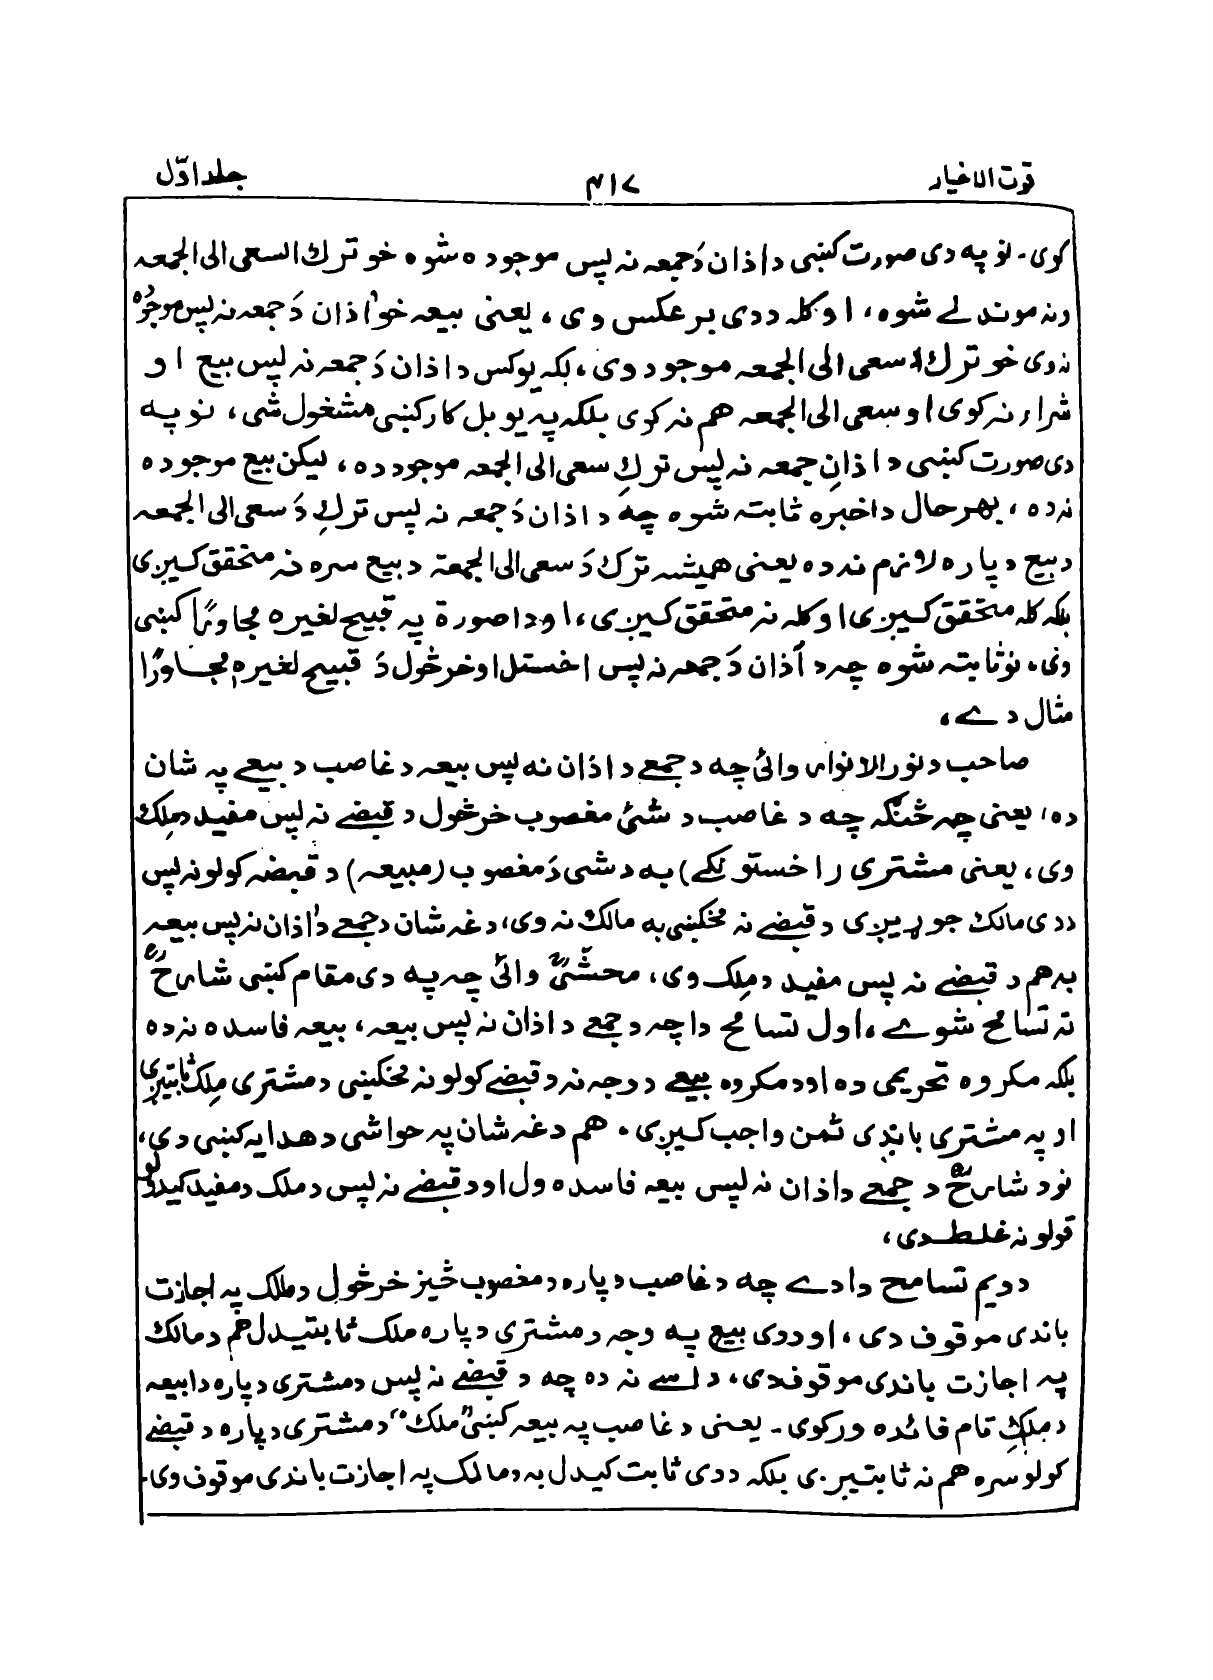 قوت الاخیار
۴۱۷
جلد اوّل
کوی۔ نو په دی صورت کښی د اذان دَ جمعه نه پس موجوده شوه خو ترك السعی الی الجمعه
ونه موندلے شوه، او کله ددی برعکس وی، یعنی بیعه خو اذان دَ جمعه نه پس موجوده
نه وی خو ترك السعی الی الجمعه موجود وی، بلکه یوکس د اذان دَ جمعه نه پس بیع او
شراء نه کوی او سعی الی الجمعه هم نه کوی بلکه په یو بل کار کښی مشغول شی، نو په
دی صورت کښی د اذانِ جمعه نه پس تركِ سعی الی الجمعه موجود ده، لیکن بیع موجوده
نه ده، بهرحال داخبره ثابته شوه چه د اذان دَ جمعه نه پس تركِ دَ سعی الی الجمعه
د بیع دپاره لازم نه ده یعنی همیشه ترك دَ سعی الی الجمعة د بیع سره نه متحقق کیږی
بلکه کله متحقق کیږی او کله نه متحقق کیږی، او داصورة په قبیح لغیره مجاورًا کښی
وی، نو ثابته شوه چه د آذان دَ جمعه نه پس اخستل او خرڅول دَ قبیح لغیره مجاورًا
مثال دے،
صاحب د نورالانوار وائی چه د جمعے د اذان نه پس بیعه د غاصب د بیعے په شان
ده، یعنی چه څنګه چه د غاصب د شئ مغصوب خرڅول د قبضے نه پس مفید د مِلك
وی، یعنی مشتری (اخستونکے) به د شی دَ مغصوب (مبیعه) د قبضه کولو نه پس
ددی مالك جوړیږی د قبضے نه مخکښی به مالك نه وی، دغه شان د جمعے د اذان نه پس بیعه
به هم د قبضے نه پس مفید د مِلك وی، محشّیؒ وائی چه په دی مقام کښی شارحؒ
ته تسامح شوے، اول تسامح داچه د جمعے د اذان نه پس بیعه، بیعه فاسده نه ده
بلکه مکروه تحریمی ده او د مکروه بیعے د وجه نه د قبضے کولو نه مخکښی د مشتری مِلك ثابتیږی
او په مشتری باندی ثمن واجب کیږی. هم دغه شان په حواشی د هدایه کښی دی،
نو د شارحؒ د جمعے د اذان نه پس بیعه فاسده ول او د قبضے نه پس د ملك د مفید کیدلو
قولونه غلط دی،
دویم تسامح دا دے چه د غاصب دپاره د مغصوب څیز خرڅول د مالك په اجازت
باندی موقوف دی، او ددی بیع په وجه د مشتری دپاره ملك ثابتیدل هم د مالك
په اجازت باندی موقوف دی، داسے نه ده چه د قبضے نه پس د مشتری دپاره دا بیعه
د مِلكِ تام فائده ورکوی۔ یعنی د غاصب په بیعه کښی "ملك" د مشتری دپاره د قبضے
کولو سره هم نه ثابتیږی بلکه ددی ثابت کیدل به د مالك په اجازت باندی موقوف وی۔